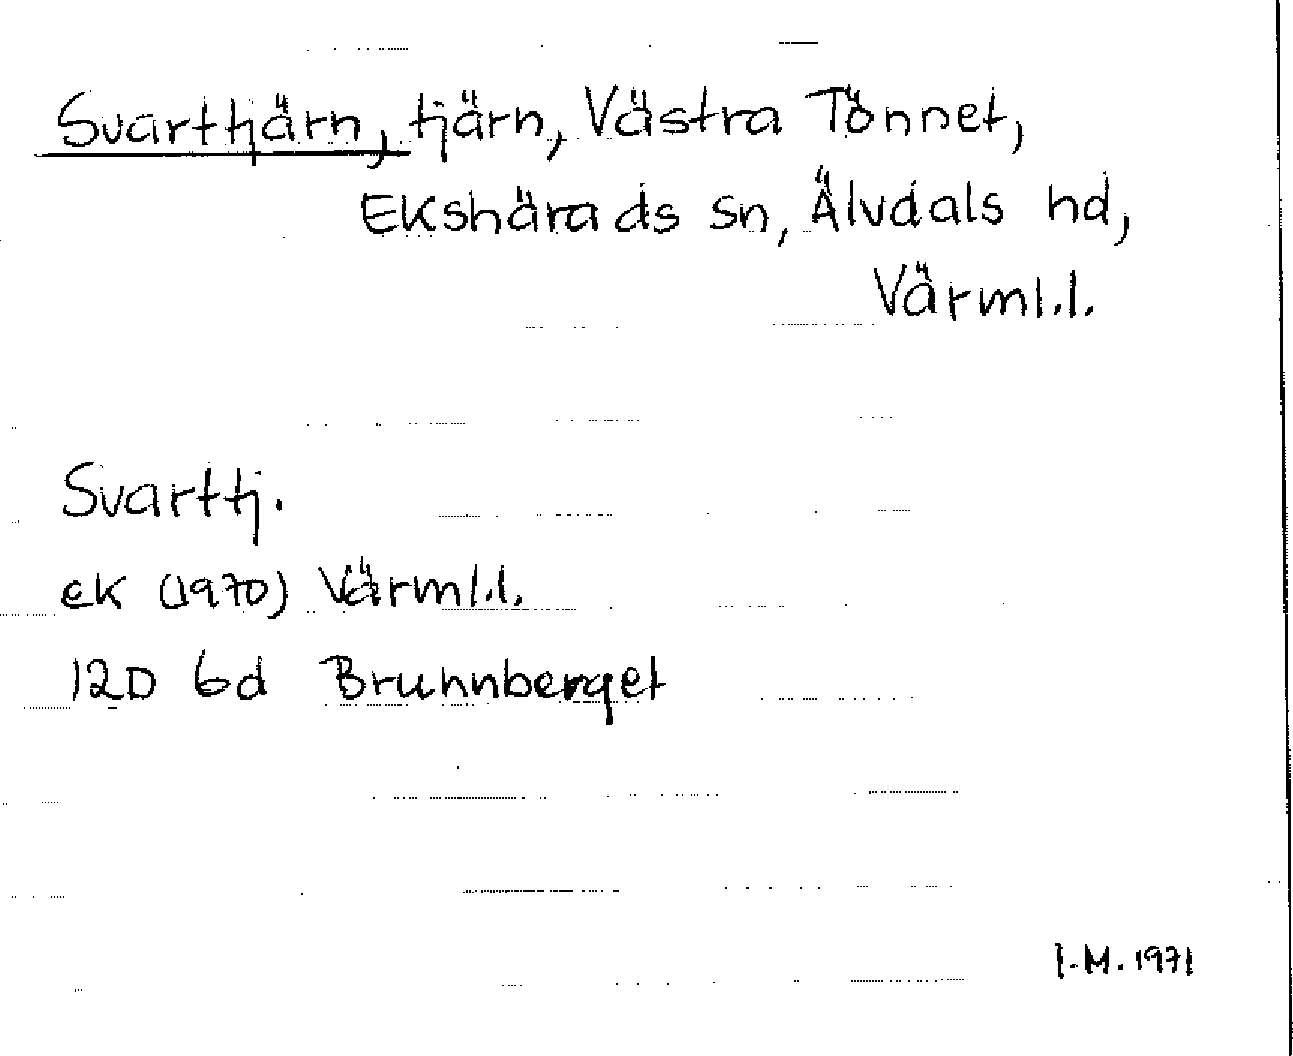 Svarttjärn, tjärn, Västra Tönnet,
Ekshärads sn, Älvdals hd,
Värml.l.
Svarttj.
ek (1970) Värml.l.
12D 6d Bruhnberget
I.M. 1971